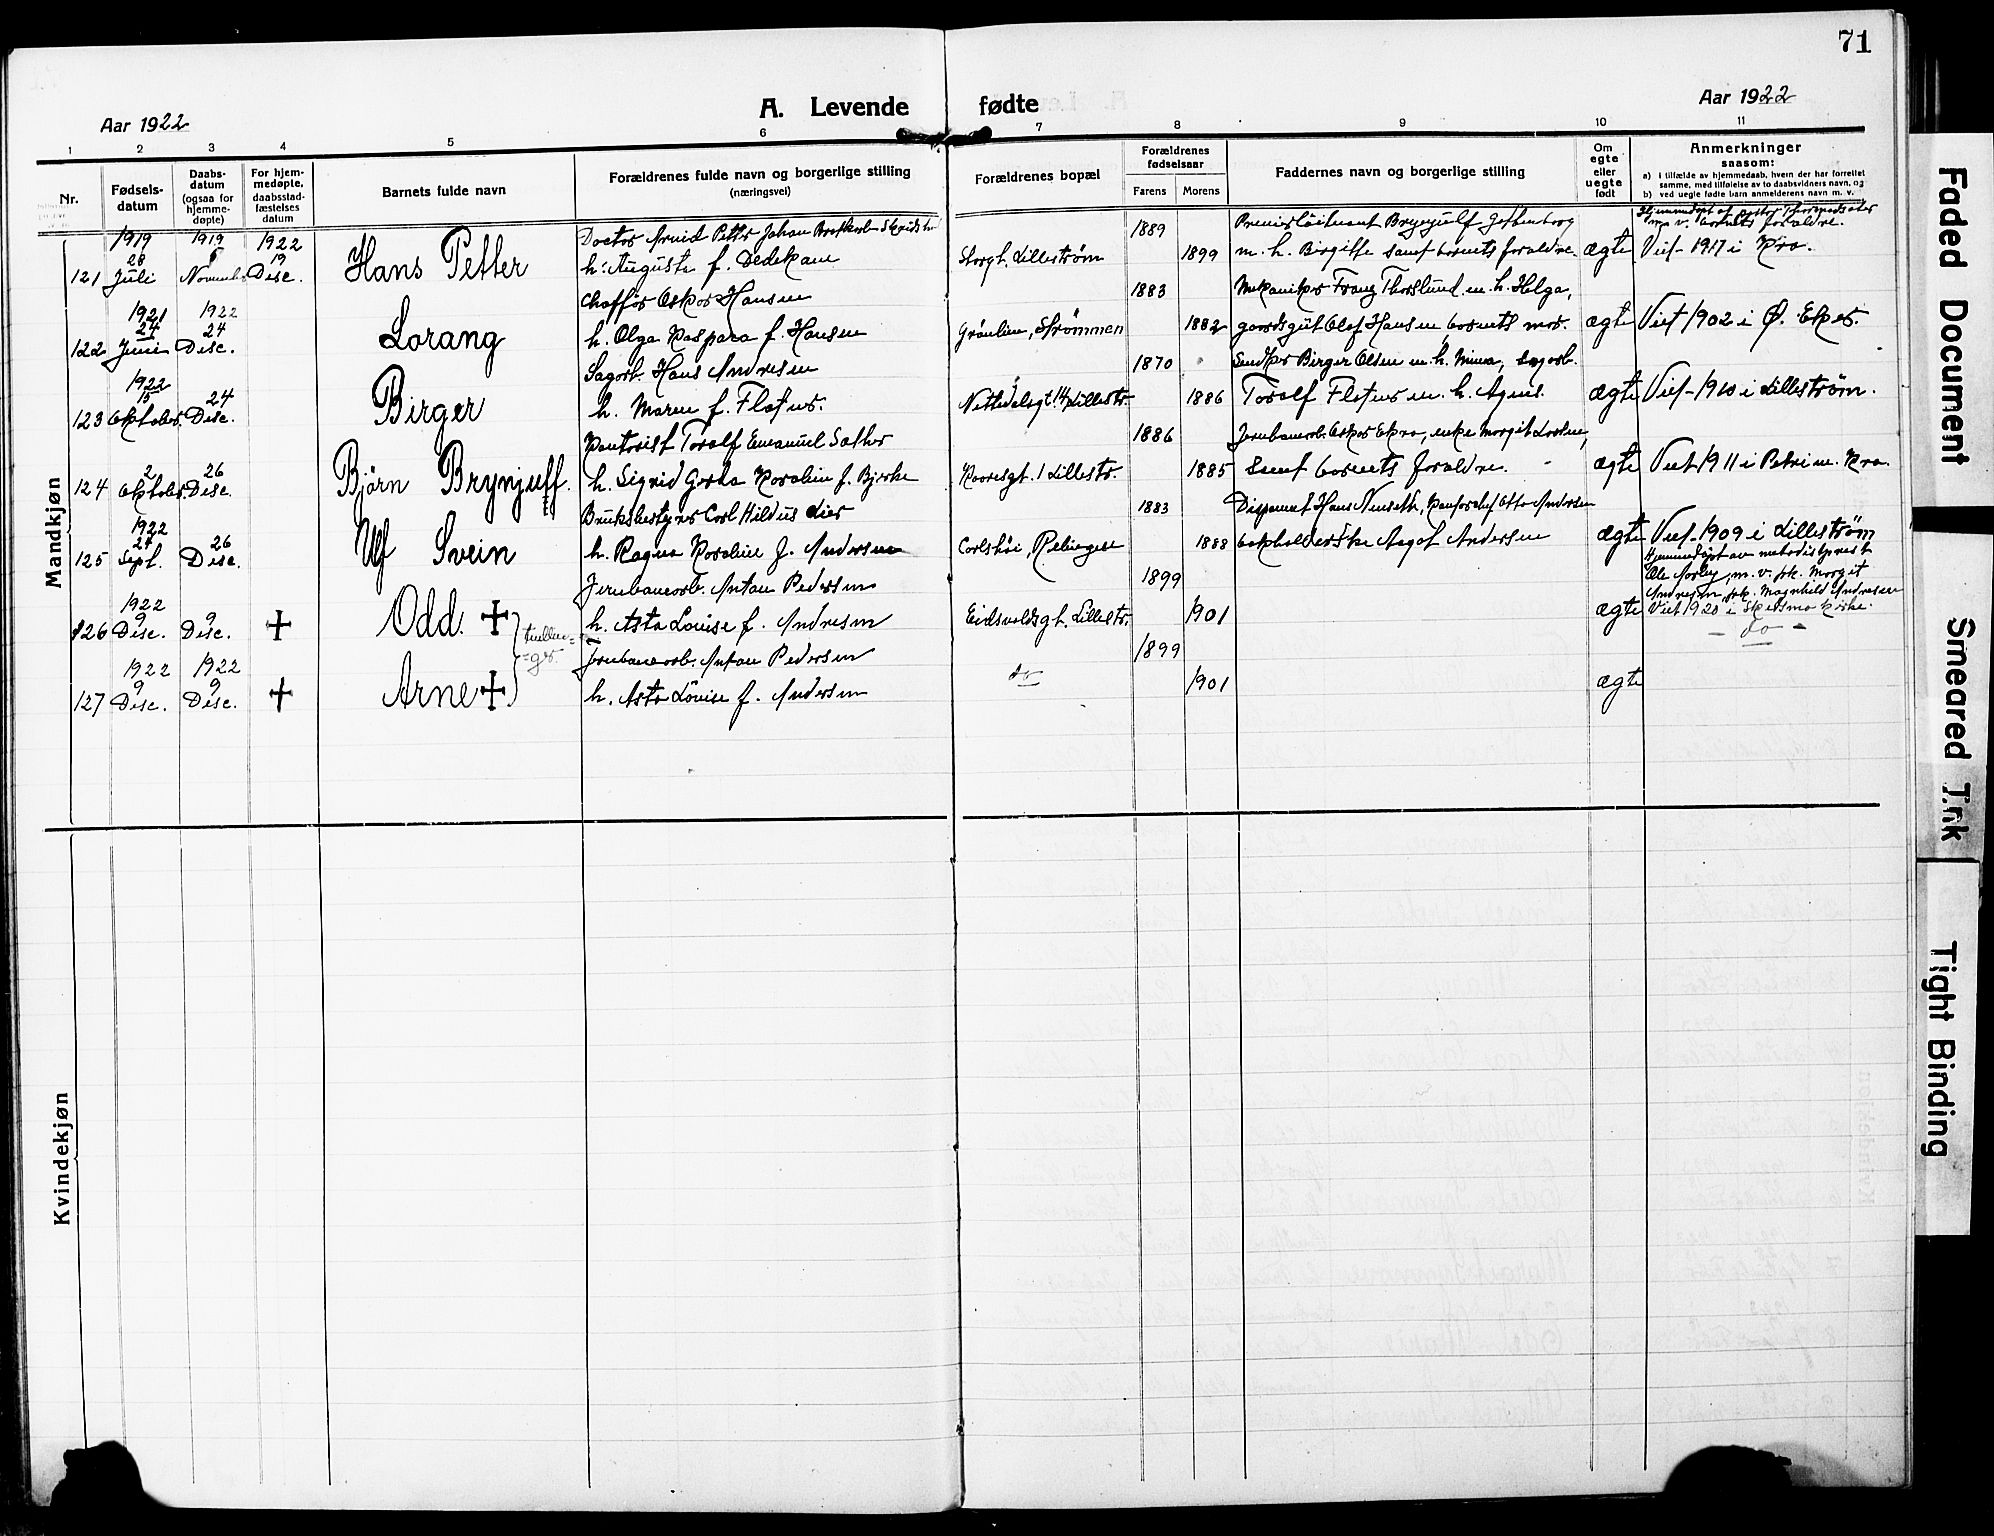 71
A. Levende fødte
Aar 1922
Aar 1922
1 2 3 4 5 6 7 8 9 10 11
Nr.
Fødsels-
datum
Daabs-
datum
(ogsaa for
hjemme-
døpte)
For hjem-
medøpte,
daabsstad-
fæstelses
datum
Barnets fulde navn
Forældrenes fulde navn og borgerlige stilling
(næringsvei)
Forældrenes bopæl
Forældrenes
fødselsaar
Farens Morens
Faddernes navn og borgerlige stilling
Om
egte
eller
uegte
født
Anmerkninger
saasom:
a) i tilfælde av hjemmedaab, hvem der har forrettet
samme, med tilføielse av to daabsvidners navn, og
b) ved uegte fødte barn anmelderens navn m. v.
Mandkjøn
1919 1919 1922 Doctor Arvid Petter Johan 1889
28 5 19
121 Juli Novembr Desc. Hans Petter h. Auguste f. Dedekam Storgt. Lillestrøm 1899 m. h. Birgitte samt barnets forældre. ægte Viet 1917 i Kra.
m. v. barnets forældre.
1921 1922 Chaffør Oskar Hansen 1883 Mekaniker Franz Thorslund m. h. Helga,
24 24
122 Juni Desc. Lorang h. Olga Kaspara f. Hansen Grønlien, Strømmen 1882 gaardsgut Olaf Hansen barnets mor. ægte Viet 1902 i Ø. Eker.
1922 Sagarb. Hans Andresen 1870 Birger Olsen m. h. Minna, sagarb.
15 24
123 Oktober. Desc. Birger h. Maren f. Flatner. Nittedalsgt. 14, Lillestr. 1886 Toralf Flatner m. h. Agnes. ægte Viet 1910 i Lillestrøm.
Kontorist Toralf Emanuel Sather 1886 Jernbanearb. Oskar Ekra, enke Margit
2 26
124 Oktober. Desc. Bjørn Brynjulf h. Sigrid Gerda Rosalie f. Bjerke Kaaresgt. 1 Lillestr. 1885 Samt barnets forældre. ægte Viet 1911 i Petri m. Kra.
1922 Bruksbestyrer Carl Hildus Lier 1883 Disponent Hans Nenseth, kontorchef Otto Andersen
24 26
125 Sept. Desc. Ulf Svein h. Ragna Rosalie f. Andersen Carlshøi, Rælingen 1888 bokholderske Aagot Andersen ægte Viet 1909 i Lillestrøm
1922 Jernbanearb. Anton Pedersen 1899 Hjemmedøpt av metodistprest
Ole Aarby, m. v. frk. Margit
Andresen, frk. Magnhild Andresen
9 9
126 Desc. Desc. + Odd. + h. Asta Louise f. Andresen Eidsvoldsgt. Lillestr. 1901 ægte Viet 1920 i Skedsmo kirke.
tvillin-
ger.
1922 1922 Jernbanearb. Anton Pedersen 1899 - do -
9 9
127 Desc. Desc. + Arne + h. Asta Louise f. Andersen do 1901 ægte
Kvindekjøn
Faded Document
Smeared Ink
Tight Binding